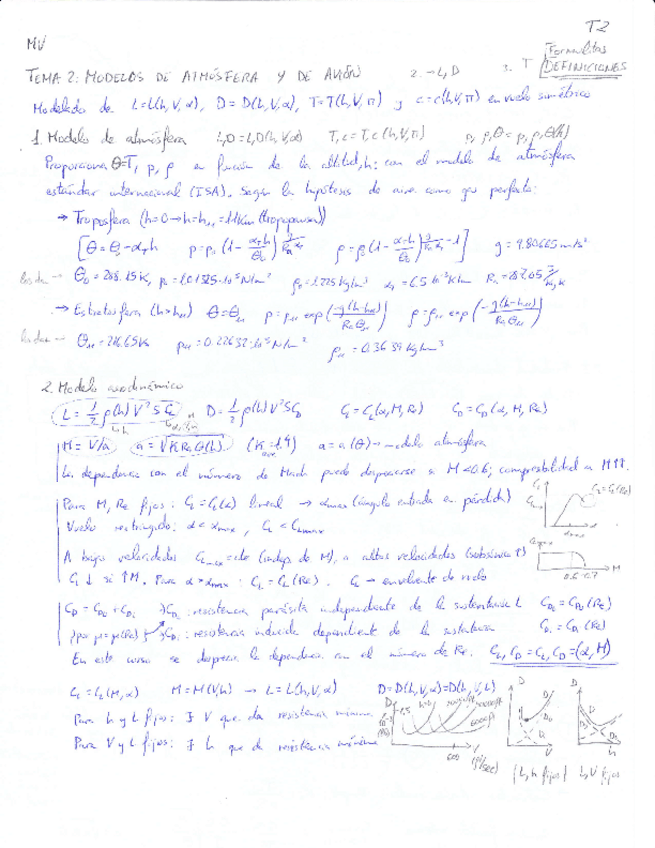 T2
MV
Formulitas
TEMA 2: MODELOS DE ATMÓSFERA Y DE AVIÓN 2.→L,D 3. T DEFINICIONES
Modelado de L=L(h,V,α), D=D(h,V,α), T=T(h,V,π) y c=c(h,V,π) en vuelo simétrico
1. Modelo de atmósfera L,D=L,D(h,V,α) T,c=T,c(h,V,π) p,ρ,Θ=p,ρ,Θ(h)
Proporciona Θ=T, p, ρ en función de la altitud, h; con el modelo de atmósfera
estándar internacional (ISA). Según la hipótesis de aire como gas perfecto:
→ Troposfera (h=0→h=h₁₁=11km (tropopausa))
[Θ=Θ₀-α_T h p=p₀(1-α_T h/Θ₀)^(g/(R_a α_T)) ρ=ρ₀(1-α_T h/Θ₀)^(g/(R_a α_T)-1)] g=9.80665 m/s²
Θ₀=288.15K, p₀=1.01325·10⁵N/m² ρ₀=1.225kg/m³ α_T=6.5·10⁻³K/m R_a=287.05 J/kg K
→ Estratosfera (h>h₁₁) Θ=Θ₁₁ p=p₁₁ exp(-g(h-h₁₁)/(R_aΘ₁₁)) ρ=ρ₁₁ exp(-g(h-h₁₁)/(R_aΘ₁₁))
Θ₁₁=216.65K p₁₁=0.22632·10⁵N/m² ρ₁₁=0.3639kg/m³
2. Modelo aerodinámico
L=½ρ(h)V²SC_L D=½ρ(h)V²SC_D C_L=C_L(α,M,Re) C_D=C_D(α,M,Re)
M=V/a a=√(K R_a Θ(h)) (K=1.4) a=a(Θ)→modelo atmósfera
La dependencia con el número de Mach puede despreciarse si M<0.6; compresibilidad a M↑↑.
Para M, Re fijos: C_L=C_L(α) lineal → α_max (ángulo entrada en pérdida)
Vuelo rectilíneo: α<α_max, C_L<C_Lmax
A bajas velocidades C_Lmax=cte (indep. de M), a altas velocidades (subsónica ↑)
C_L↓ si ↑M. Para α>α_max: C_L=C_L(Re). C_L→envolvente de vuelo
0.6-0.7 M
C_D=C_D0+C_Di C_D0: resistencia parásita independiente de la sustentación L C_D0=C_D0(Re)
C_Di: resistencia inducida dependiente de la sustentación C_Di=C_Di(Re)
En este curso se desprecia la dependencia con el número de Re. C_L,C_D=C_L,C_D(α,M)
C_L=C_L(M,α) M=M(V,h) → L=L(h,V,α) D=D(h,V,α)=D(h,V,L)
Para h y L fijos: ∃ V que da resistencia mínima
Para V y L fijos: ∃ h que da resistencia mínima
600 V (ft/sec)
(L,h fijos) L,V fijos